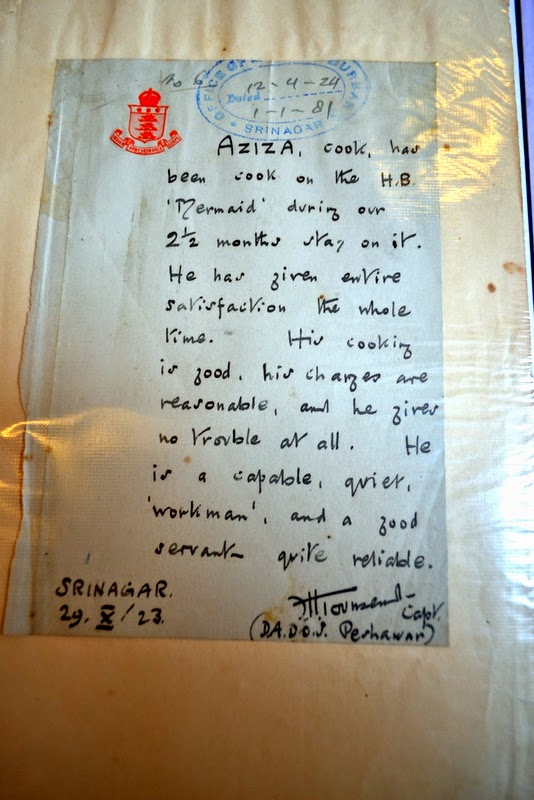 No 6
OFFICE OF
12-4-24
Dated
1-1-81
SRINAGAR
AZIZA, cook, has
been cook on the H.B.
'Mermaid' during our
2½ months stay on it.
He has given entire
satisfaction the whole
time. His cooking
is good, his charges are
reasonable, and he gives
no trouble at all. He
is a capable, quiet,
'workman', and a good
servant quite reliable.
SRINAGAR.
29. X / 23.
Townsend Capt.
(D.A.D.O.S. Peshawar)